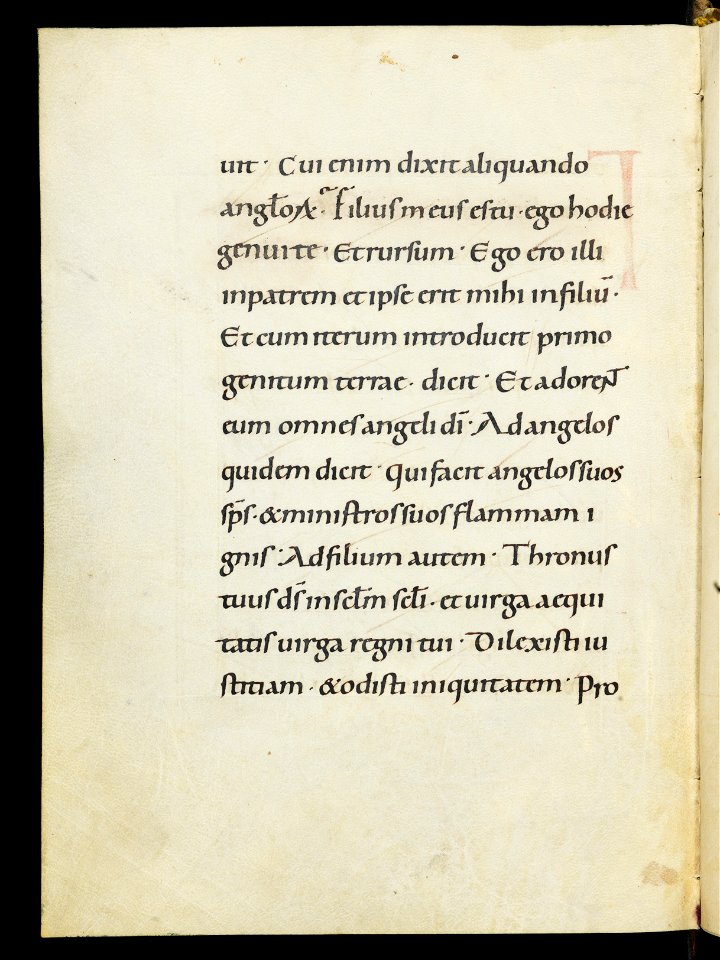 uit · Cui enim dixit aliquando
anglꝉoꝝ · Filius meus es tu · ego hodie
genui te · Et rursum · Ego ero illi
in patrem et ipse erit mihi in filiū ·
Et cum iterum introducit primo
genitum terrae · dicit · Et adorent
eum omnes angeli dī · Ad angelos
quidem dicit · Qui facit angelos suos
sp̄s · & ministros suos flammam i
gnis · Ad filium autem · Thronus
tuus ds̄ in sclm̄ scli̅ · et uirga aequi
tatis uirga regni tui · Dilexisti iu
stitiam · & odisti iniquitatem · Pro